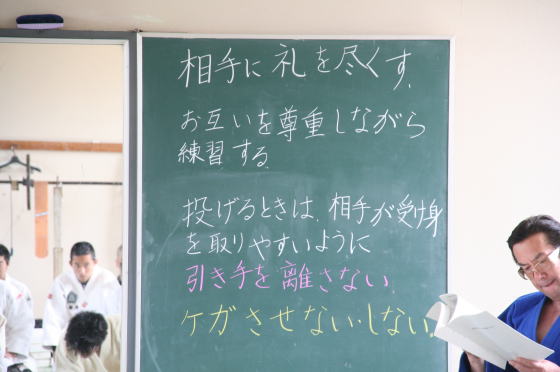 相手に礼を尽くす.
お互いを尊重しながら
練習する.
投げるときは,相手が受け身
を取りやすいように
引き手を離さない.
ケガさせない・しない.